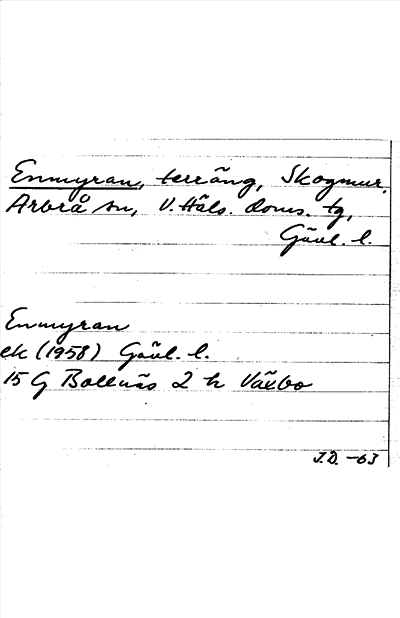 Enmyran, terräng, Skogmur,
Arbrå sn, V. Häls. doms. tg,
Gävl. l.
Enmyran
ek (1958) Gävl. l.
15 G Bollnäs 2 h Växbo
J.D. -63